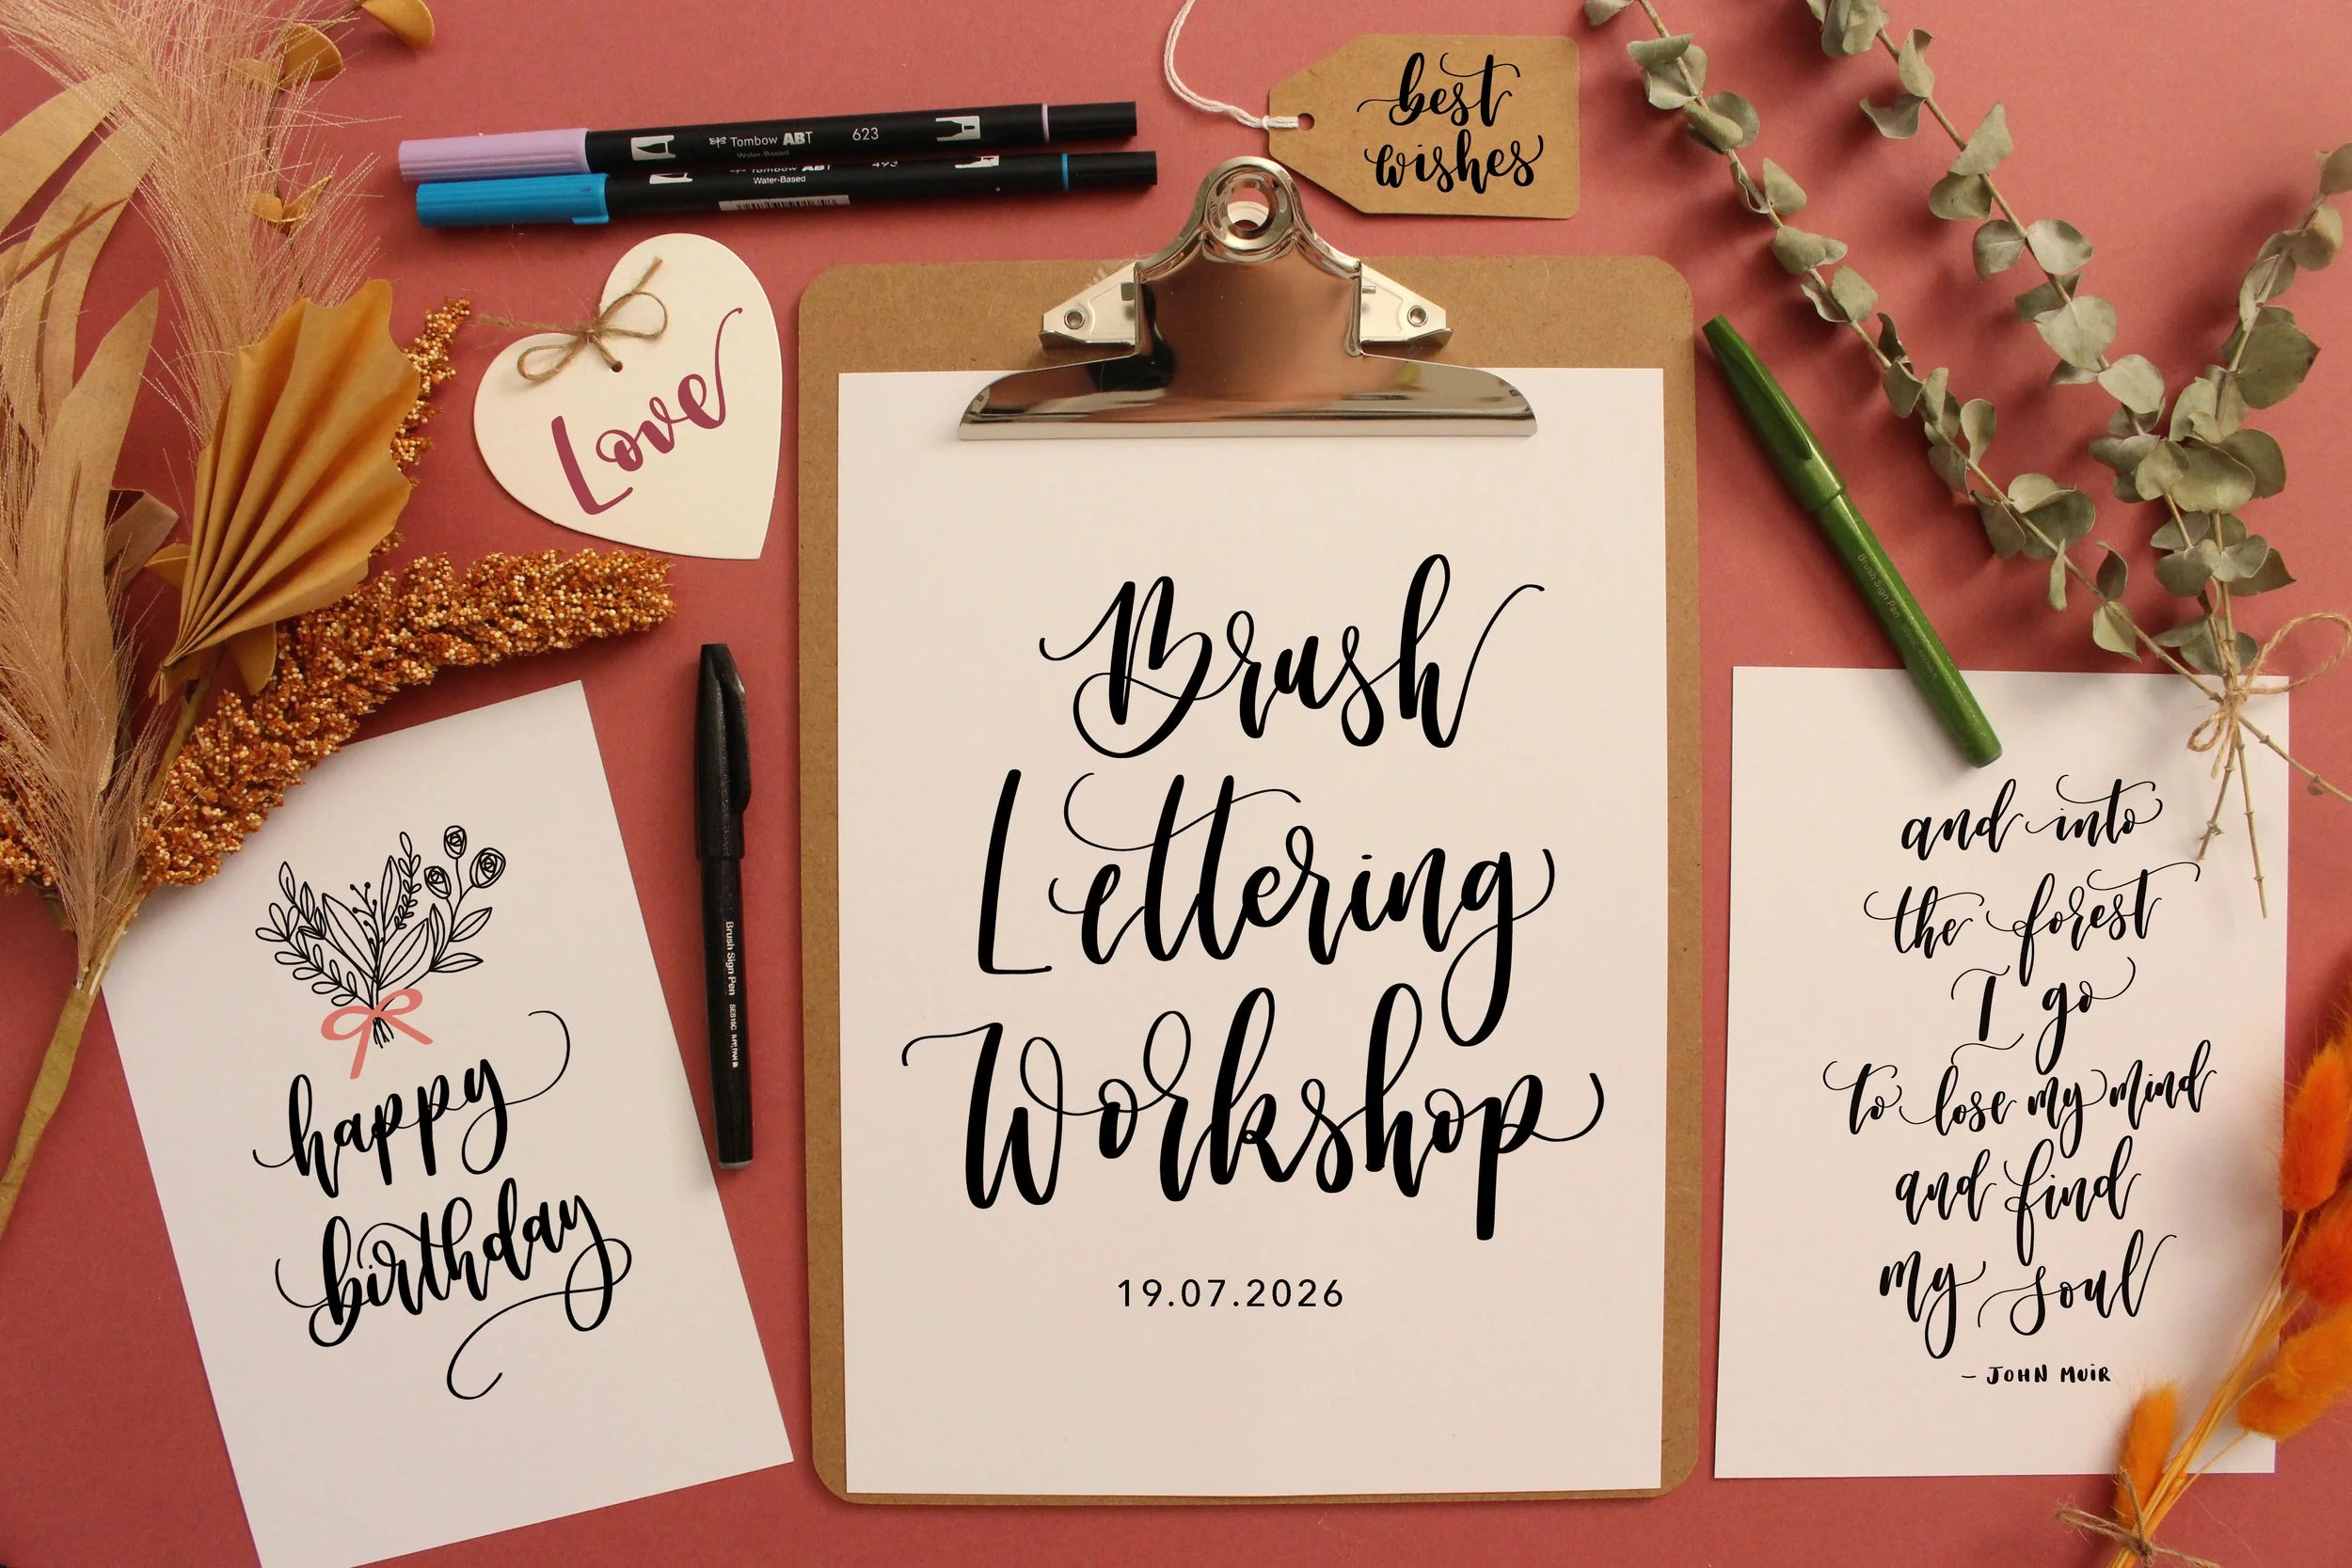 Tombow ABT 623
Water-Based
Tombow ABT 493
Water-Based
best
wishes
Love
Brush
Lettering
Workshop
19.07.2026
Brush Sign Pen
Brush Sign Pen SES15C
happy
birthday
and into
the forest
I go
to lose my mind
and find
my soul
- JOHN MUIR